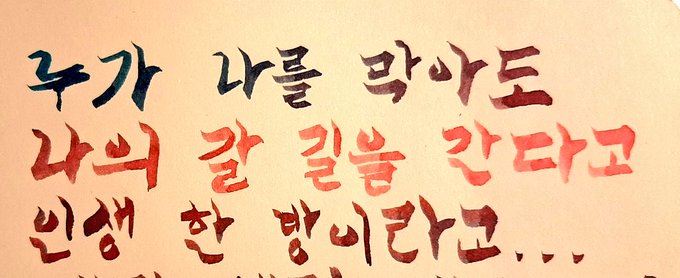 누가 나를 막아도
나의 갈 길을 간다고
인생 한 방이라고...